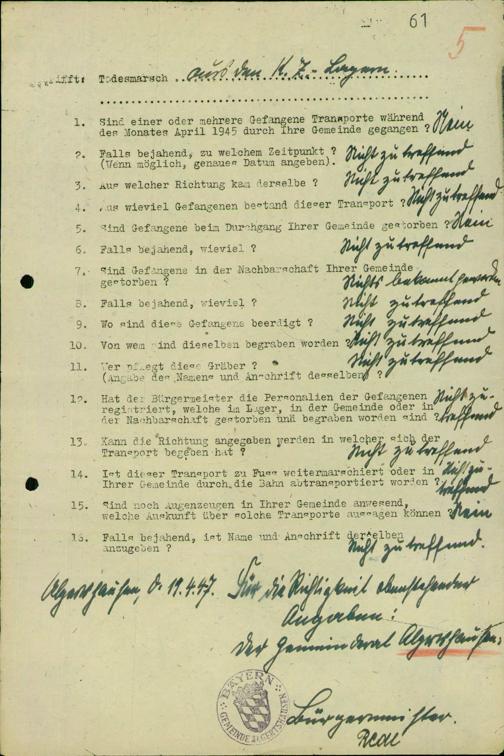 61
5
rifft: Todesmarsch ..aus den K. Z.-Lagern....
1. Sind einer oder mehrere Gefangene Transporte während
des Monates April 1945 durch Ihre Gemeinde gegangen ? Nein
2. Falls bejahend, zu welchem Zeitpunkt ? Nicht zutreffend
(Wenn möglich, genaues Datum angeben).
3. Aus welcher Richtung kam derselbe ? Nicht zutreffend
4. Aus wieviel Gefangenen bestand dieser Transport ? Nicht zutreffend
5. Sind Gefangene beim Durchgang Ihrer Gemeinde gestorben ? Nein
6. Falls bejahend, wieviel ? Nicht zutreffend
7. Sind Gefangene in der Nachbarschaft Ihrer Gemeinde
gestorben ? Nichts bekannt geworden
8. Falls bejahend, wieviel ? Nicht zutreffend
9. Wo sind diese Gefangene beerdigt ? Nicht zutreffend
10. Von wem sind dieselben begraben worden ? Nicht zutreffend
11. Wer pflegt diese Gräber ? Nicht zutreffend
(Angabe des Namens und Anschrift desselben)
12. Hat der Bürgermeister die Personalien der Gefangenen Nicht zu-
registriert, welche im Lager, in der Gemeinde oder in
der Nachbarschaft gestorben und begraben worden sind ? treffend
13. Kann die Richtung angegeben werden in welcher sich der
Transport begeben hat ? Nicht zutreffend
14. Ist dieser Transport zu Fuss weitermarschiert oder in Nicht zu-
Ihrer Gemeinde durch die Bahn abtransportiert worden ? treffend
15. Sind noch Augenzeugen in Ihrer Gemeinde anwesend,
welche Auskunft über solche Transporte aussagen können ? Nein
16. Falls bejahend, ist Name und Anschrift derselben
anzugeben ? Nicht zutreffend.
Algertshausen, d. 19.4.47. Für die Richtigkeit obenstehender
Angaben:
Der Gemeinderat Algertshausen:
BAYERN
GEMEINDE ALGERTSHAUSEN
Bürgermeister.